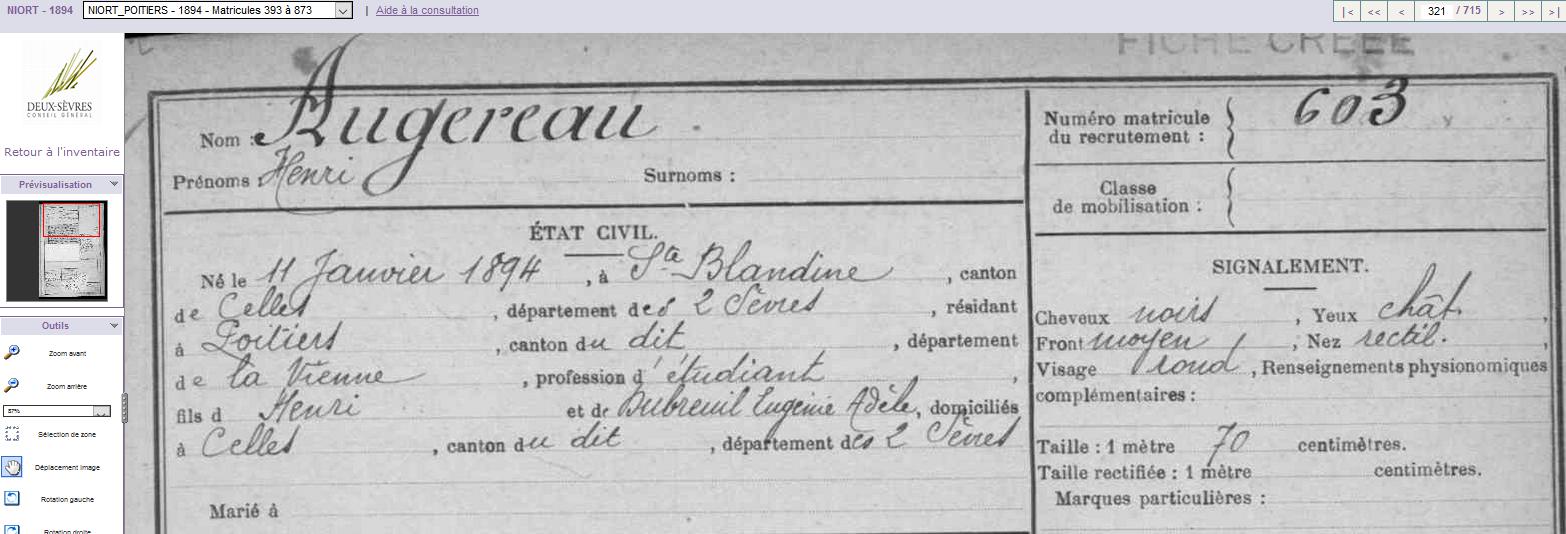 NIORT - 1894 NIORT_POITIERS - 1894 - Matricules 393 à 873 | Aide à la consultation |< << < 321 / 715 > >> >|
FICHE CRÉÉE
DEUX-SÈVRES
CONSEIL GÉNÉRAL
Retour à l'inventaire
Prévisualisation
Outils
Zoom avant
Zoom arrière
57%
Sélection de zone
Déplacement image
Rotation gauche
Rotation droite
Nom : Augereau
Prénoms : Henri Surnoms :
ÉTAT CIVIL.
Né le 11 Janvier 1894, à Ste Blandine, canton
de Celles, département des 2 Sèvres, résidant
à Poitiers, canton du dit, département
de la Vienne, profession d'étudiant,
fils d Henri et de Dubreuil Eugénie Adèle, domiciliés
à Celles, canton du dit, département des 2 Sèvres
Marié à
Numéro matricule
du recrutement : 603
Classe
de mobilisation :
SIGNALEMENT.
Cheveux noirs, Yeux chât.,
Front moyen, Nez rectil.,
Visage rond, Renseignements physionomiques
complémentaires :
Taille : 1 mètre 70 centimètres.
Taille rectifiée : 1 mètre centimètres.
Marques particulières :